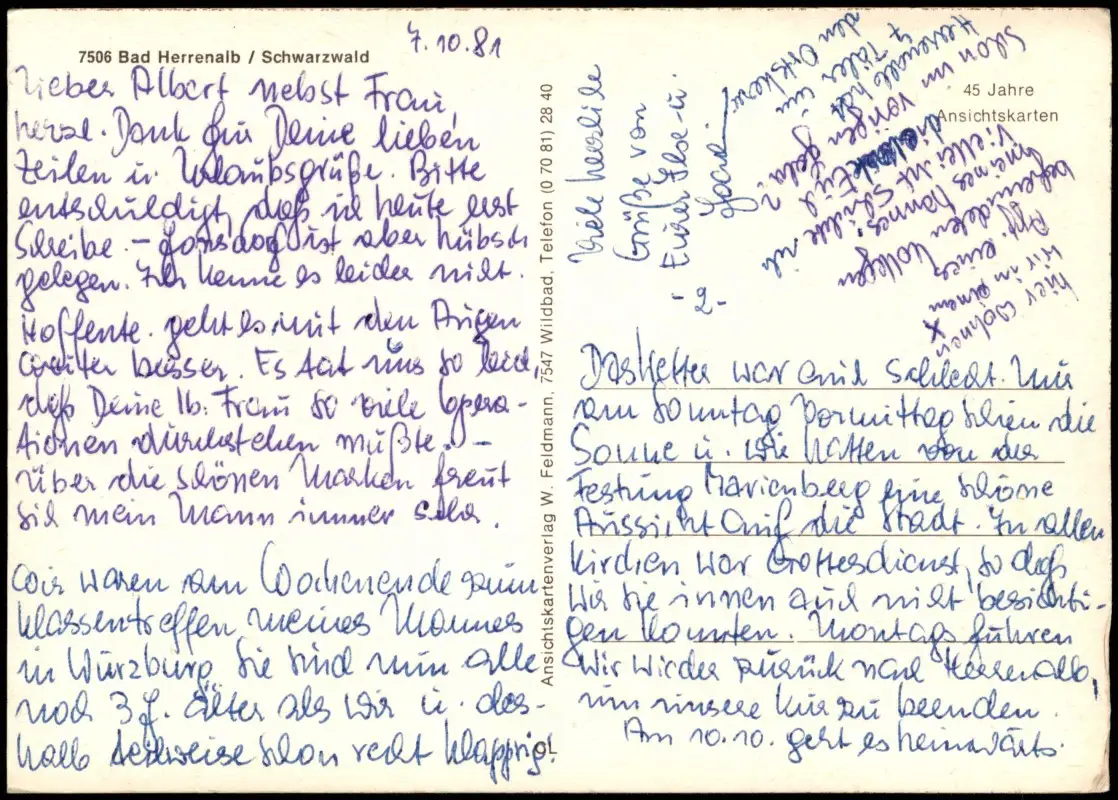 7.10.81
7506 Bad Herrenalb / Schwarzwald
Lieber Albert nebst Frau,
herzl. Dank für Deine lieben
Zeilen u. Urlaubsgrüße. Bitte
entschuldigt, daß ich heute erst
schreibe. – ist aber hübsch
gelegen. Ich kenne es leider nicht.
Hoffentl. geht es mit den Augen
weiter besser. Es tat uns so leid,
daß Deine lb. Frau so viele Opera-
tionen durchstehen mußte. –
Über die schönen Marken freut
sich mein Mann immer sehr.
Wir waren am Wochenende zum
Klassentreffen meines Mannes
in Würzburg. Sie sind nun alle
noch 3 J. älter als wir u. des-
halb teilweise schon recht klapprig!
OL
Ansichtskartenverlag W. Feldmann, 7547 Wildbad, Telefon (0 70 81) 28 40
45 Jahre
Ansichtskarten
- 2 -
Das Wetter war auch schlecht. Nur
am Sonntag Vormittag schien die
Sonne u. wir hatten von der
Festung Marienberg eine schöne
Aussicht auf die Stadt. In allen
Kirchen war Gottesdienst, so daß
wir sie innen auch nicht besichti-
gen konnten. Montags führen
wir wieder zurück nach Herrenalb,
um unsere Kur zu beenden.
Am 10.10. geht es heimwärts.
Viele herzliche
Grüße von
Eurer Ilse u.
X
hier wohnen
wir in einem
App. eines
befreundeten Kollegen
meines Mannes.
Vielleicht schickte ich
Euch
schon im vorigen Jahr?
Herrenalb hat
7 Täler um
den Ortskern!